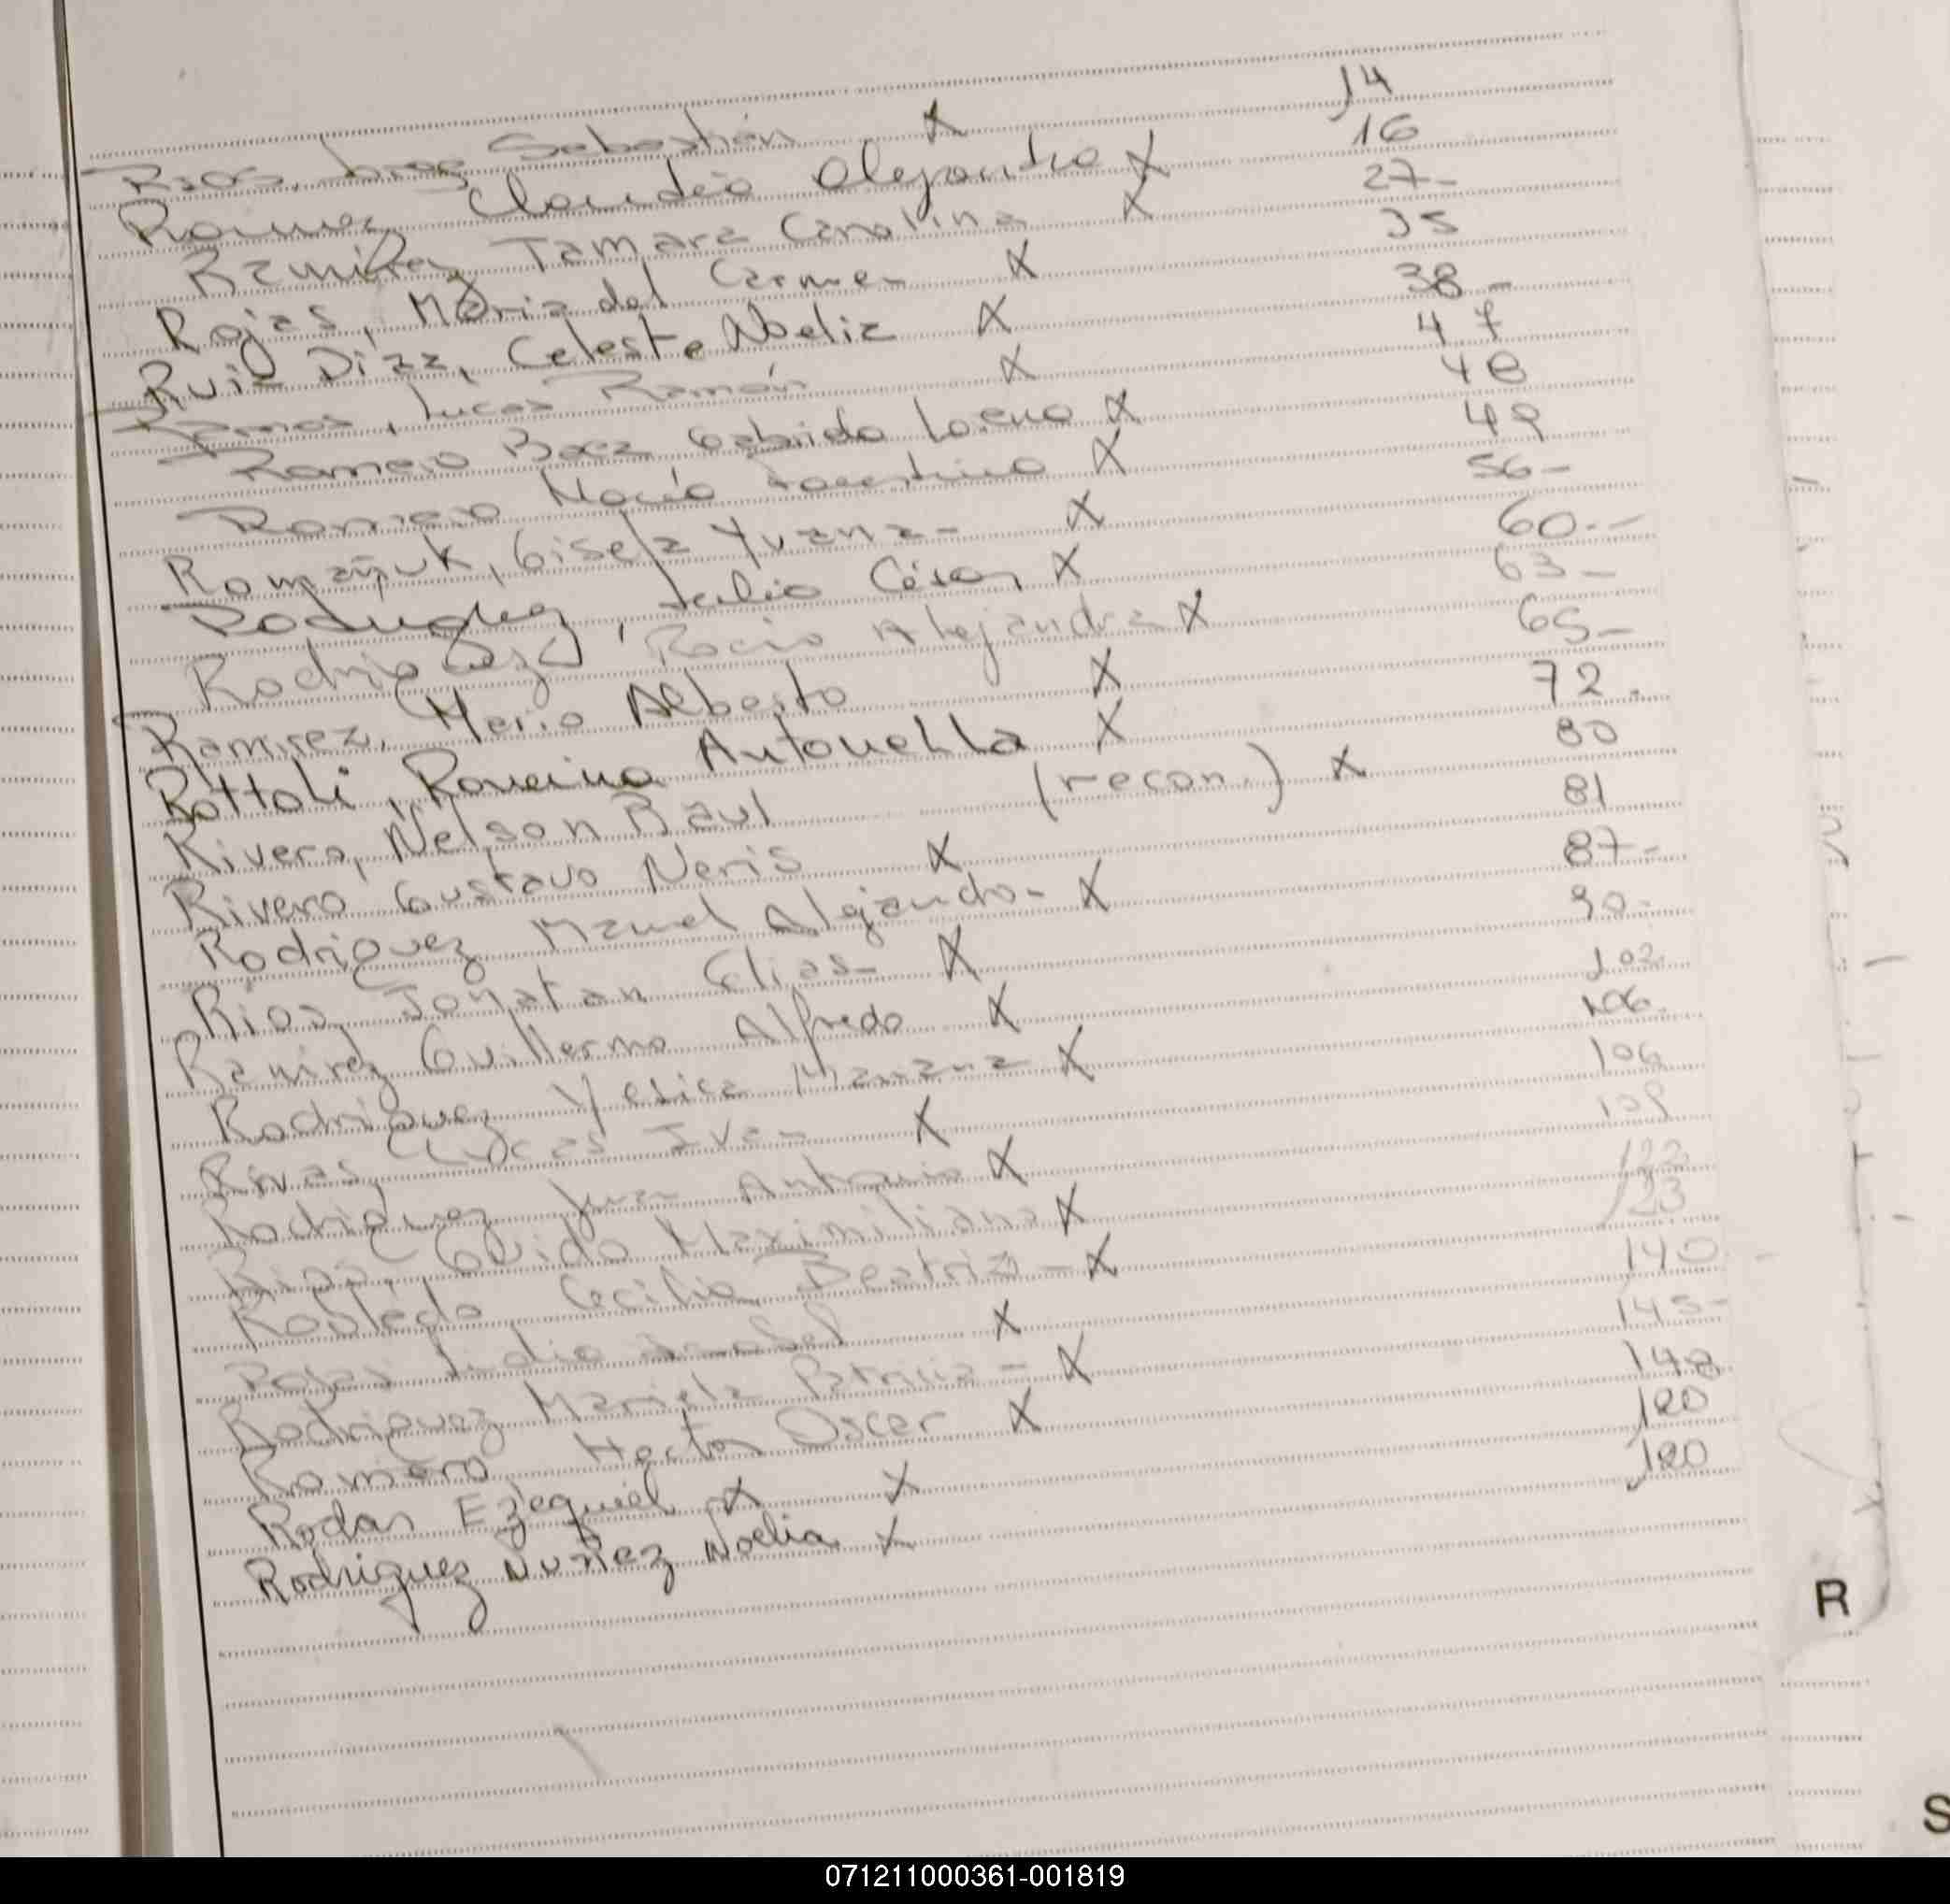 Rios, Jorge Sebastián X 14
Ramirez Claudia Alejandra X 16
Ramirez Tamara Carolina X 27-
Rojas, Maria del Carmen X 35
Ruiz Díaz, Celeste Noelia X 38-
Ramos, Lucas Ramón X 47
Romero Baez Gabriela Lorena X 48
Romero María X 49
Romañuk, Gisela Yvana- X 56-
Rodriguez, Julio César X 60.-
Rodriguez, Rocio Alejandra X 63-
Ramirez, Mario Alberto X 65-
Rottoli, Romina Antonella X 72.
Rivero, Nelson Raul (recon.) X 80
Rivero Gustavo Neris X 81
Rodriguez Manuel Alejandro- X 87-
Rios Jonatan Elias- X 90-
Ramirez Guillermo Alfredo X 102.
Rodriguez Yesica Mariana X 106.
Rivas, Lucas Ivan X 106
Rodriguez Juan Antonio X 109
Rios, Guido Maximiliano X 122
Robledo Cecilia Beatriz - X 123
Rojas Lidia Isabel X 140 -
Rodriguez Mariela Patricia - X 145-
Romero Hector Oscar X 148
Rodas Ezequiel X X 120
Rodriguez Nuñez Noelia X 120
R
S
071211000361-001819